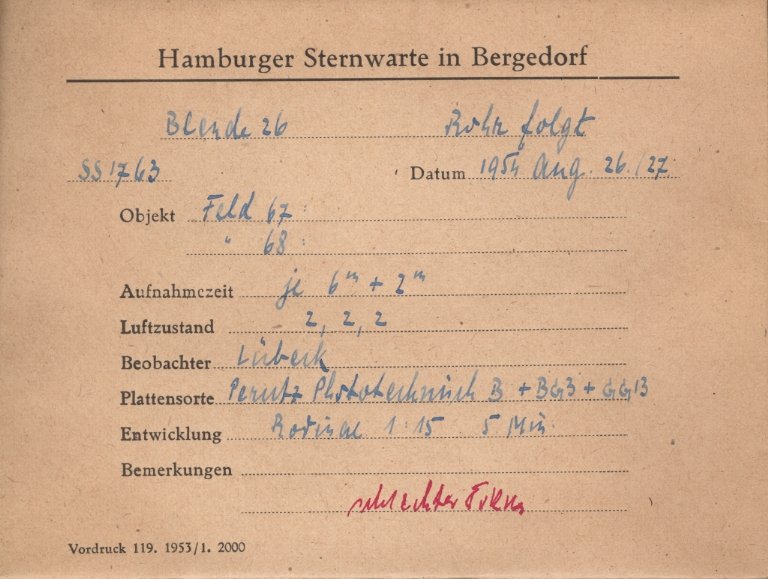 Hamburger Sternwarte in Bergedorf
Blende 26 Rohr folgt
SS 1763 Datum 1954 Aug. 26./27.
Objekt Feld 67
" 68
Aufnahmezeit je 6ᵐ + 2ᵐ
Luftzustand 2, 2, 2
Beobachter Lübeck
Plattensorte Perutz Phototechnisch B + BG3 + GG13
Entwicklung Rodinal 1:15 5 Min.
Bemerkungen
schlechter Fokus
Vordruck 119. 1953/1. 2000